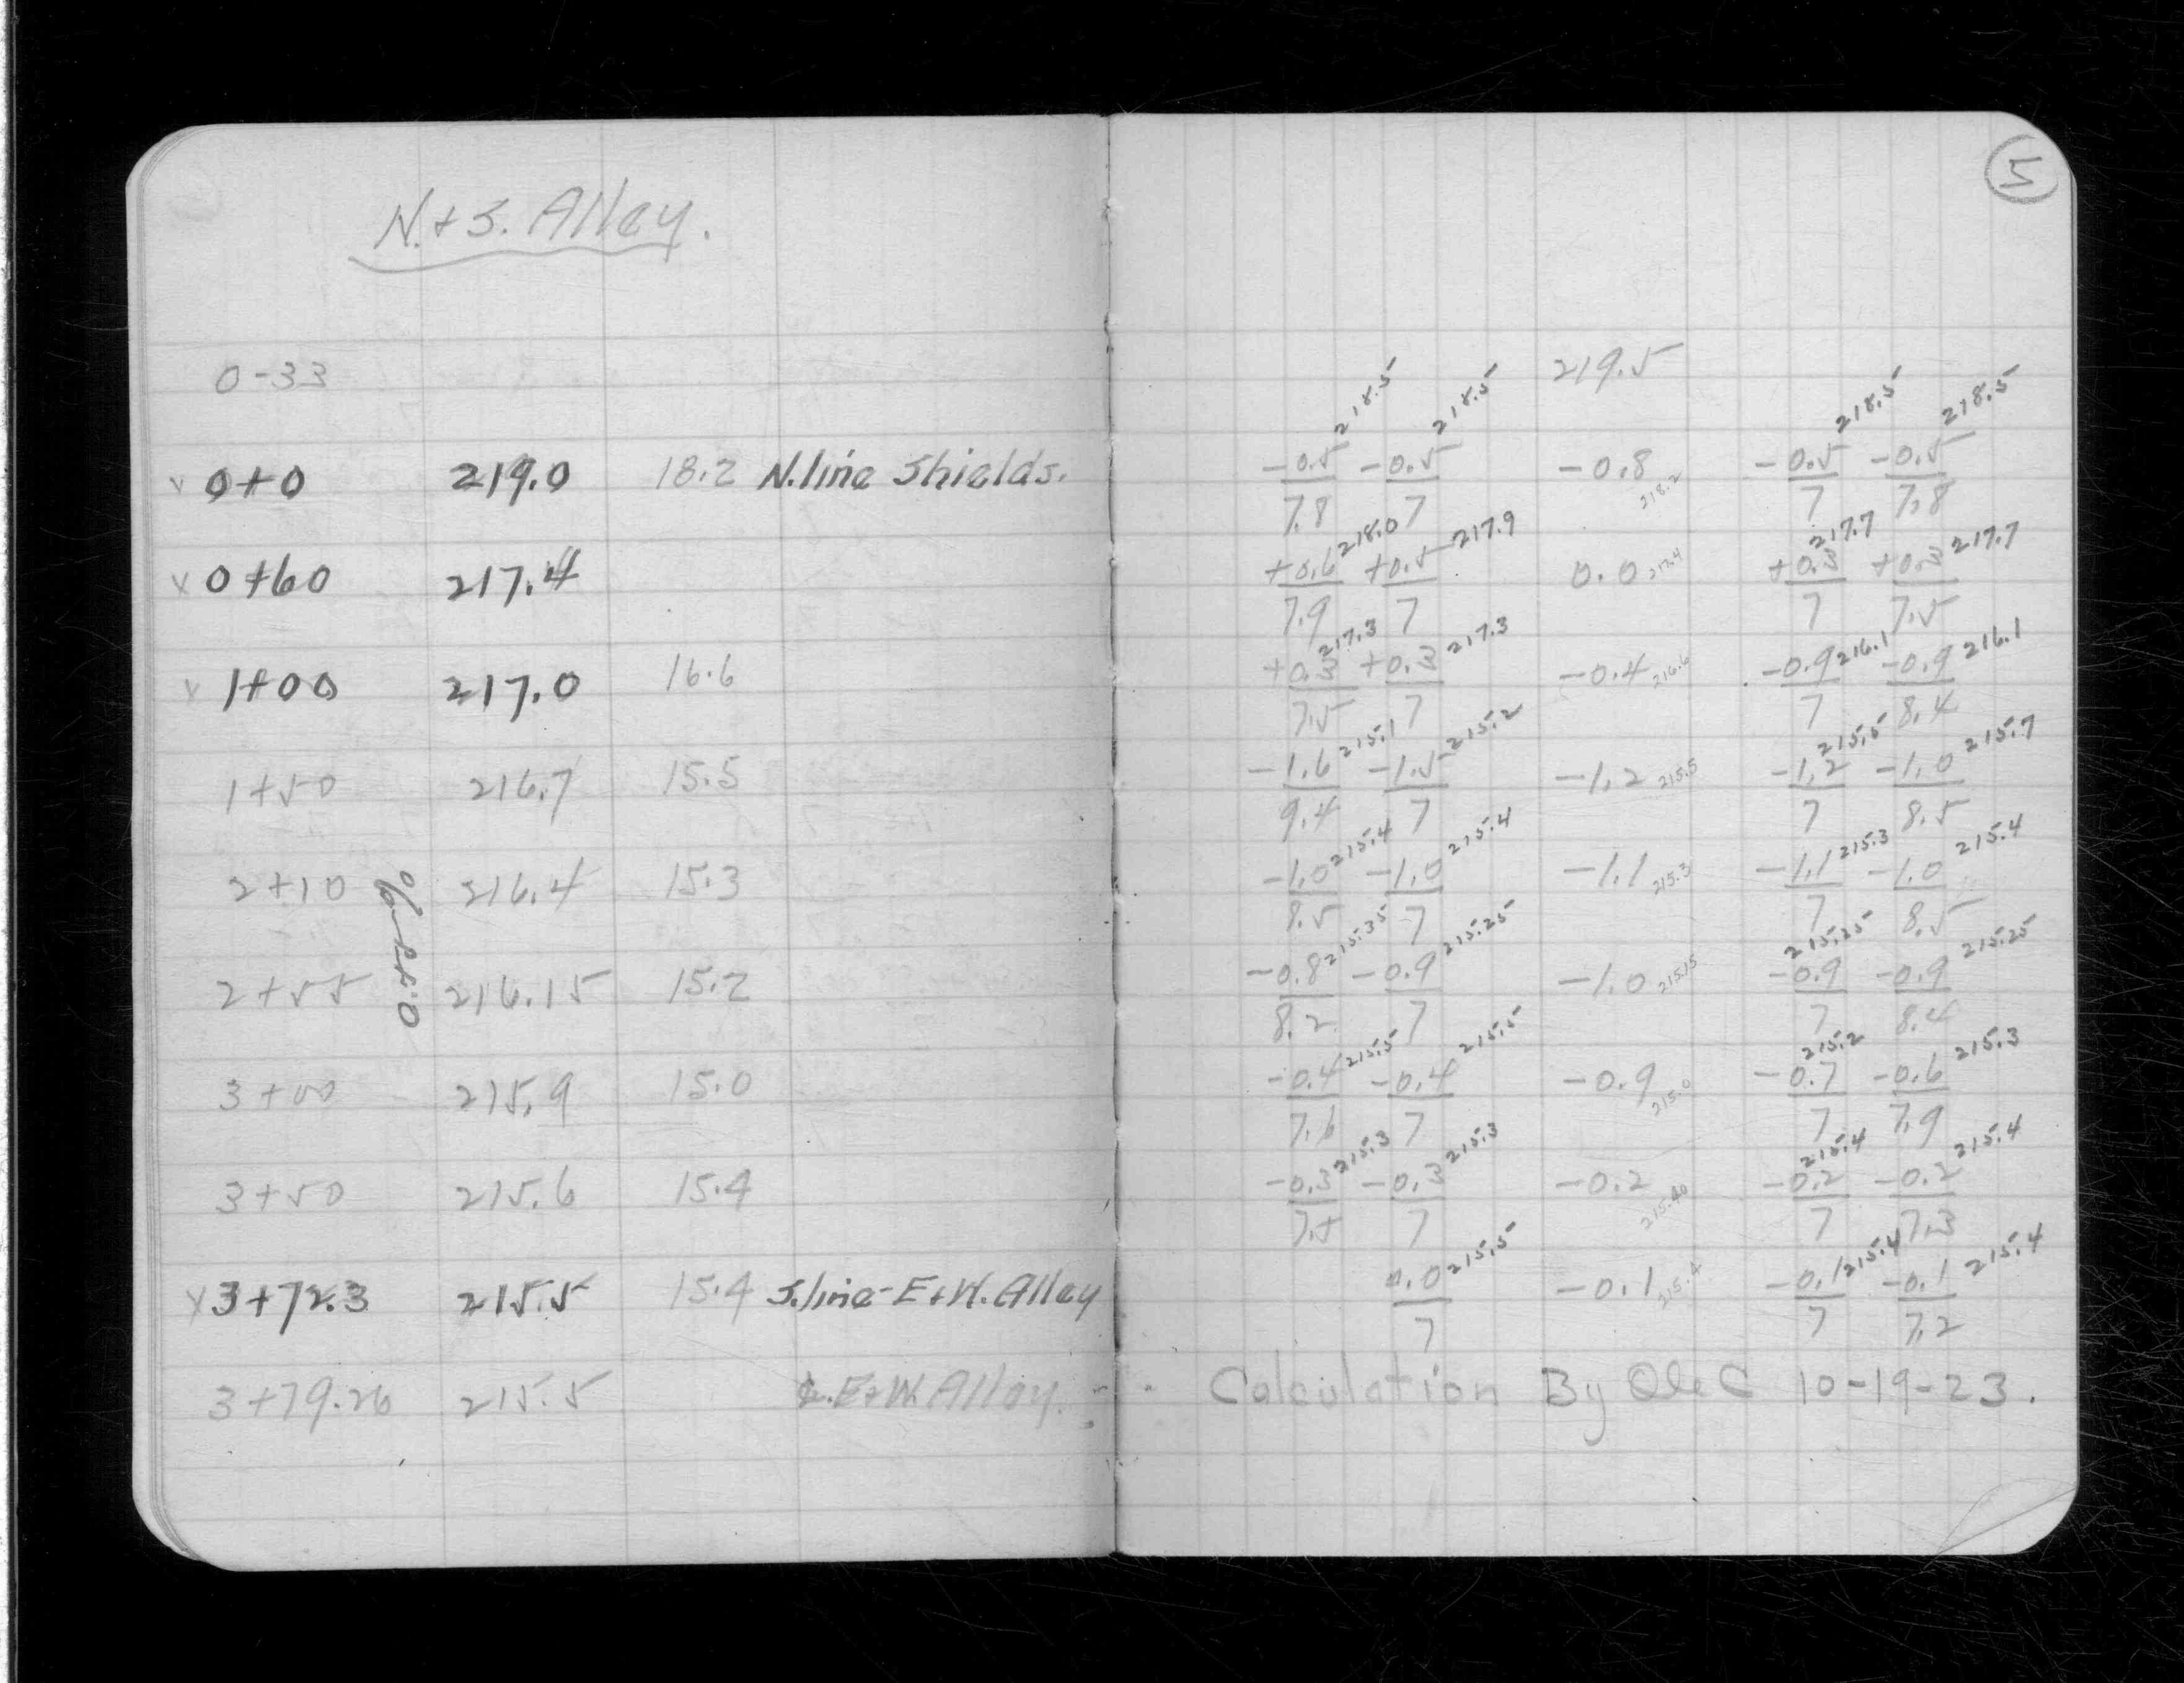 N.+S. Alley.
5
0-33 219.5
218.5 218.5 218.5 218.5
v 0+0 219.0 18.2 N. line Shields. -0.5 -0.5 -0.8 218.2 -0.5 -0.5
7.8 7 7 7.8
x 0+60 217.4 +0.6 218.0 +0.5 217.9 0.0 217.4 +0.3 217.7 +0.3 217.7
7.9 7 7 7.5
x 1+00 217.0 16.6 +0.3 217.3 +0.3 217.3 -0.4 216.6 -0.9 216.1 -0.9 216.1
7.5 7 7 8.4
1+50 216.7 15.5 -1.6 215.1 -1.5 215.2 -1.2 215.5 -1.2 215.5 -1.0 215.7
9.4 7 7 8.5
2+10 216.4 15.3 -1.0 215.4 -1.0 215.4 -1.1 215.3 -1.1 215.3 -1.0 215.4
8.5 7 7 8.5
2+55 216.15 15.2 -0.8 215.35 -0.9 215.25 -1.0 215.15 -0.9 215.25 -0.9 215.25
8.2 7 7 8.4
3+00 215.9 15.0 -0.4 215.5 -0.4 215.5 -0.9 215.0 -0.7 215.2 -0.6 215.3
7.6 7 7 7.9
3+50 215.6 15.4 -0.3 215.3 -0.3 215.3 -0.2 215.40 -0.2 215.4 -0.2 215.4
7 7 7.3
x 3+72.3 215.5 15.4 S. line-E+W. Alley 0.0 215.5 -0.1 215.4 -0.1 215.4 -0.1 215.4
7 7 7.2
3+79.26 215.5 ℄. E+W. Alley. Calculation By 10-19-23.